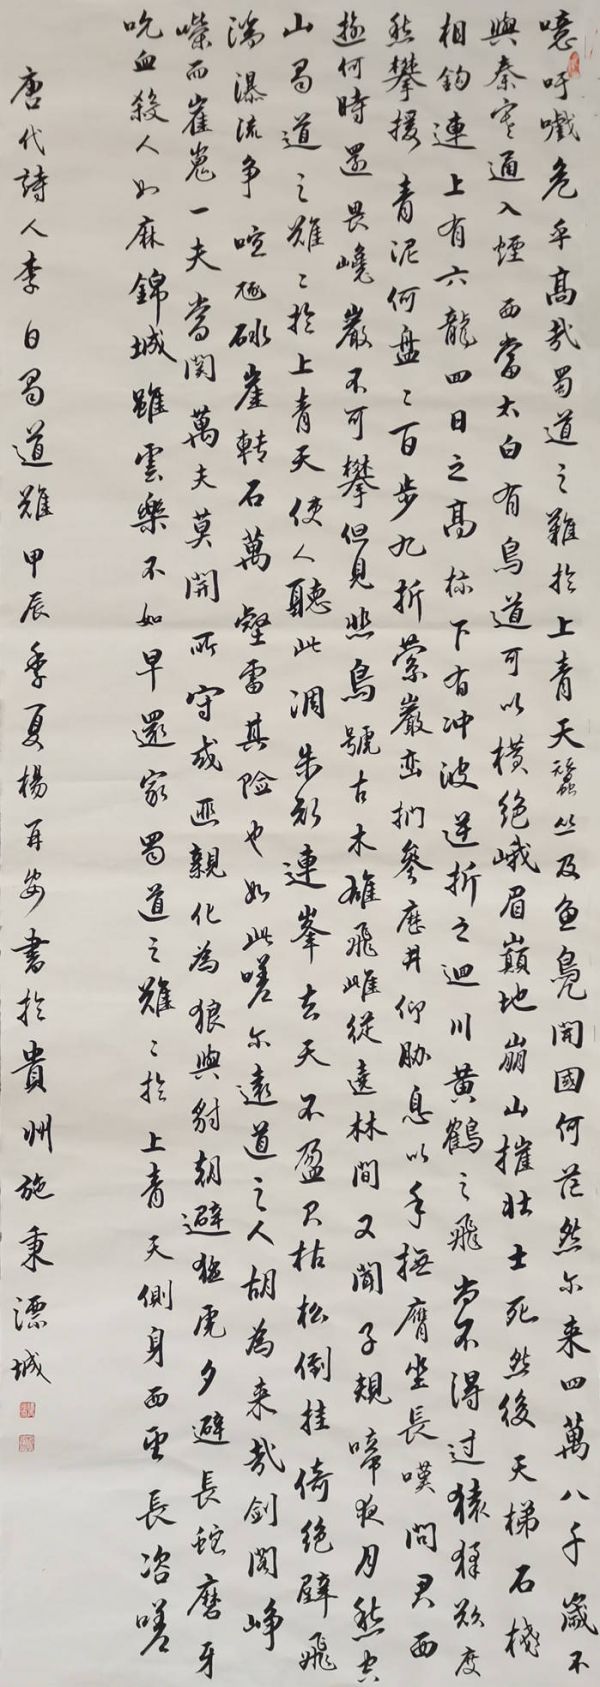 噫吁嚱危乎高哉蜀道之難於上青天蠶丛及魚鳧開國何茫然尔来四萬八千歲不
與秦塞通人煙西當太白有鳥道可以横绝峨眉巔地崩山摧壮士死然後天梯石棧
相鈎連上有六龍回日之髙标下有冲波逆折之迴川黄鶴之飛尚不得过猿猱欲度
愁攀援青泥何盤〻百步九折萦巖峦捫參歷井仰胁息以手撫膺坐長嘆問君西
遊何時還畏巉巖不可攀但見悲鳥號古木雄飛雌從遶林間又聞子規啼夜月愁空
山蜀道之難〻於上青天使人聽此凋朱颜連峯去天不盈尺枯松倒挂倚绝壁飛
湍瀑流争喧豗砯崖轉石萬壑雷其险也如此嗟尔遠道之人胡為来哉剑閣峥
嶸而崔嵬一夫當関萬夫莫開所守或匪親化為狼與豺朝避猛虎夕避長蛇磨牙
吮血殺人如麻錦城雖雲樂不如早還家蜀道之難〻於上青天側身西望長咨嗟
唐代詩人李白蜀道難甲辰季夏楊再安書於貴州施秉漂城